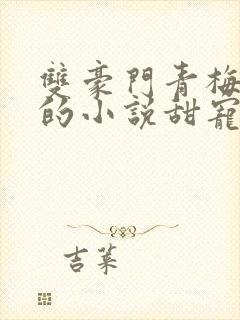 雙豪門青梅
的小說甜寵
吉萊